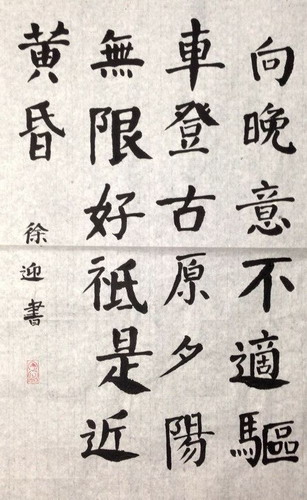 向晚意不適驅
車登古原夕陽
無限好祗是近
黄昏
徐迎書